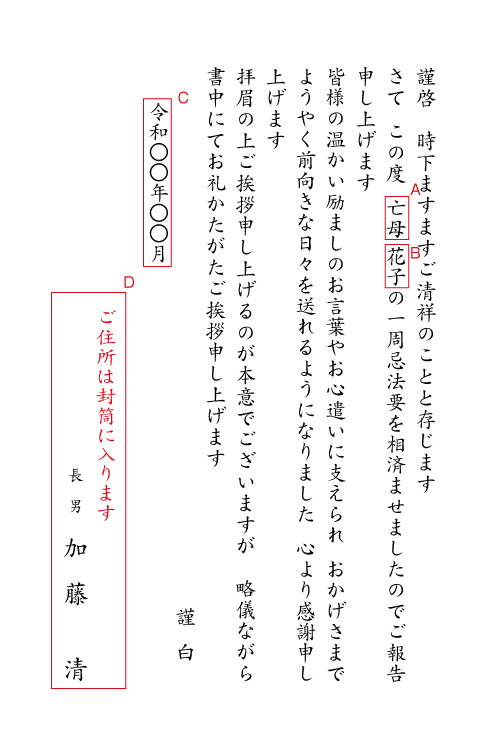 謹啓　時下ますますご清祥のことと存じます
さて　この度　亡母　花子の一周忌法要を相済ませましたのでご報告
申し上げます
皆様の温かい励ましのお言葉やお心遣いに支えられ　おかげさまで
ようやく前向きな日々を送れるようになりました　心より感謝申し
上げます
拝眉の上ご挨拶申し上げるのが本意でございますが　略儀ながら
書中にてお礼かたがたご挨拶申し上げます
謹白
令和〇〇年〇〇月
ご住所は封筒に入ります
長男　加藤　清
A
B
C
D